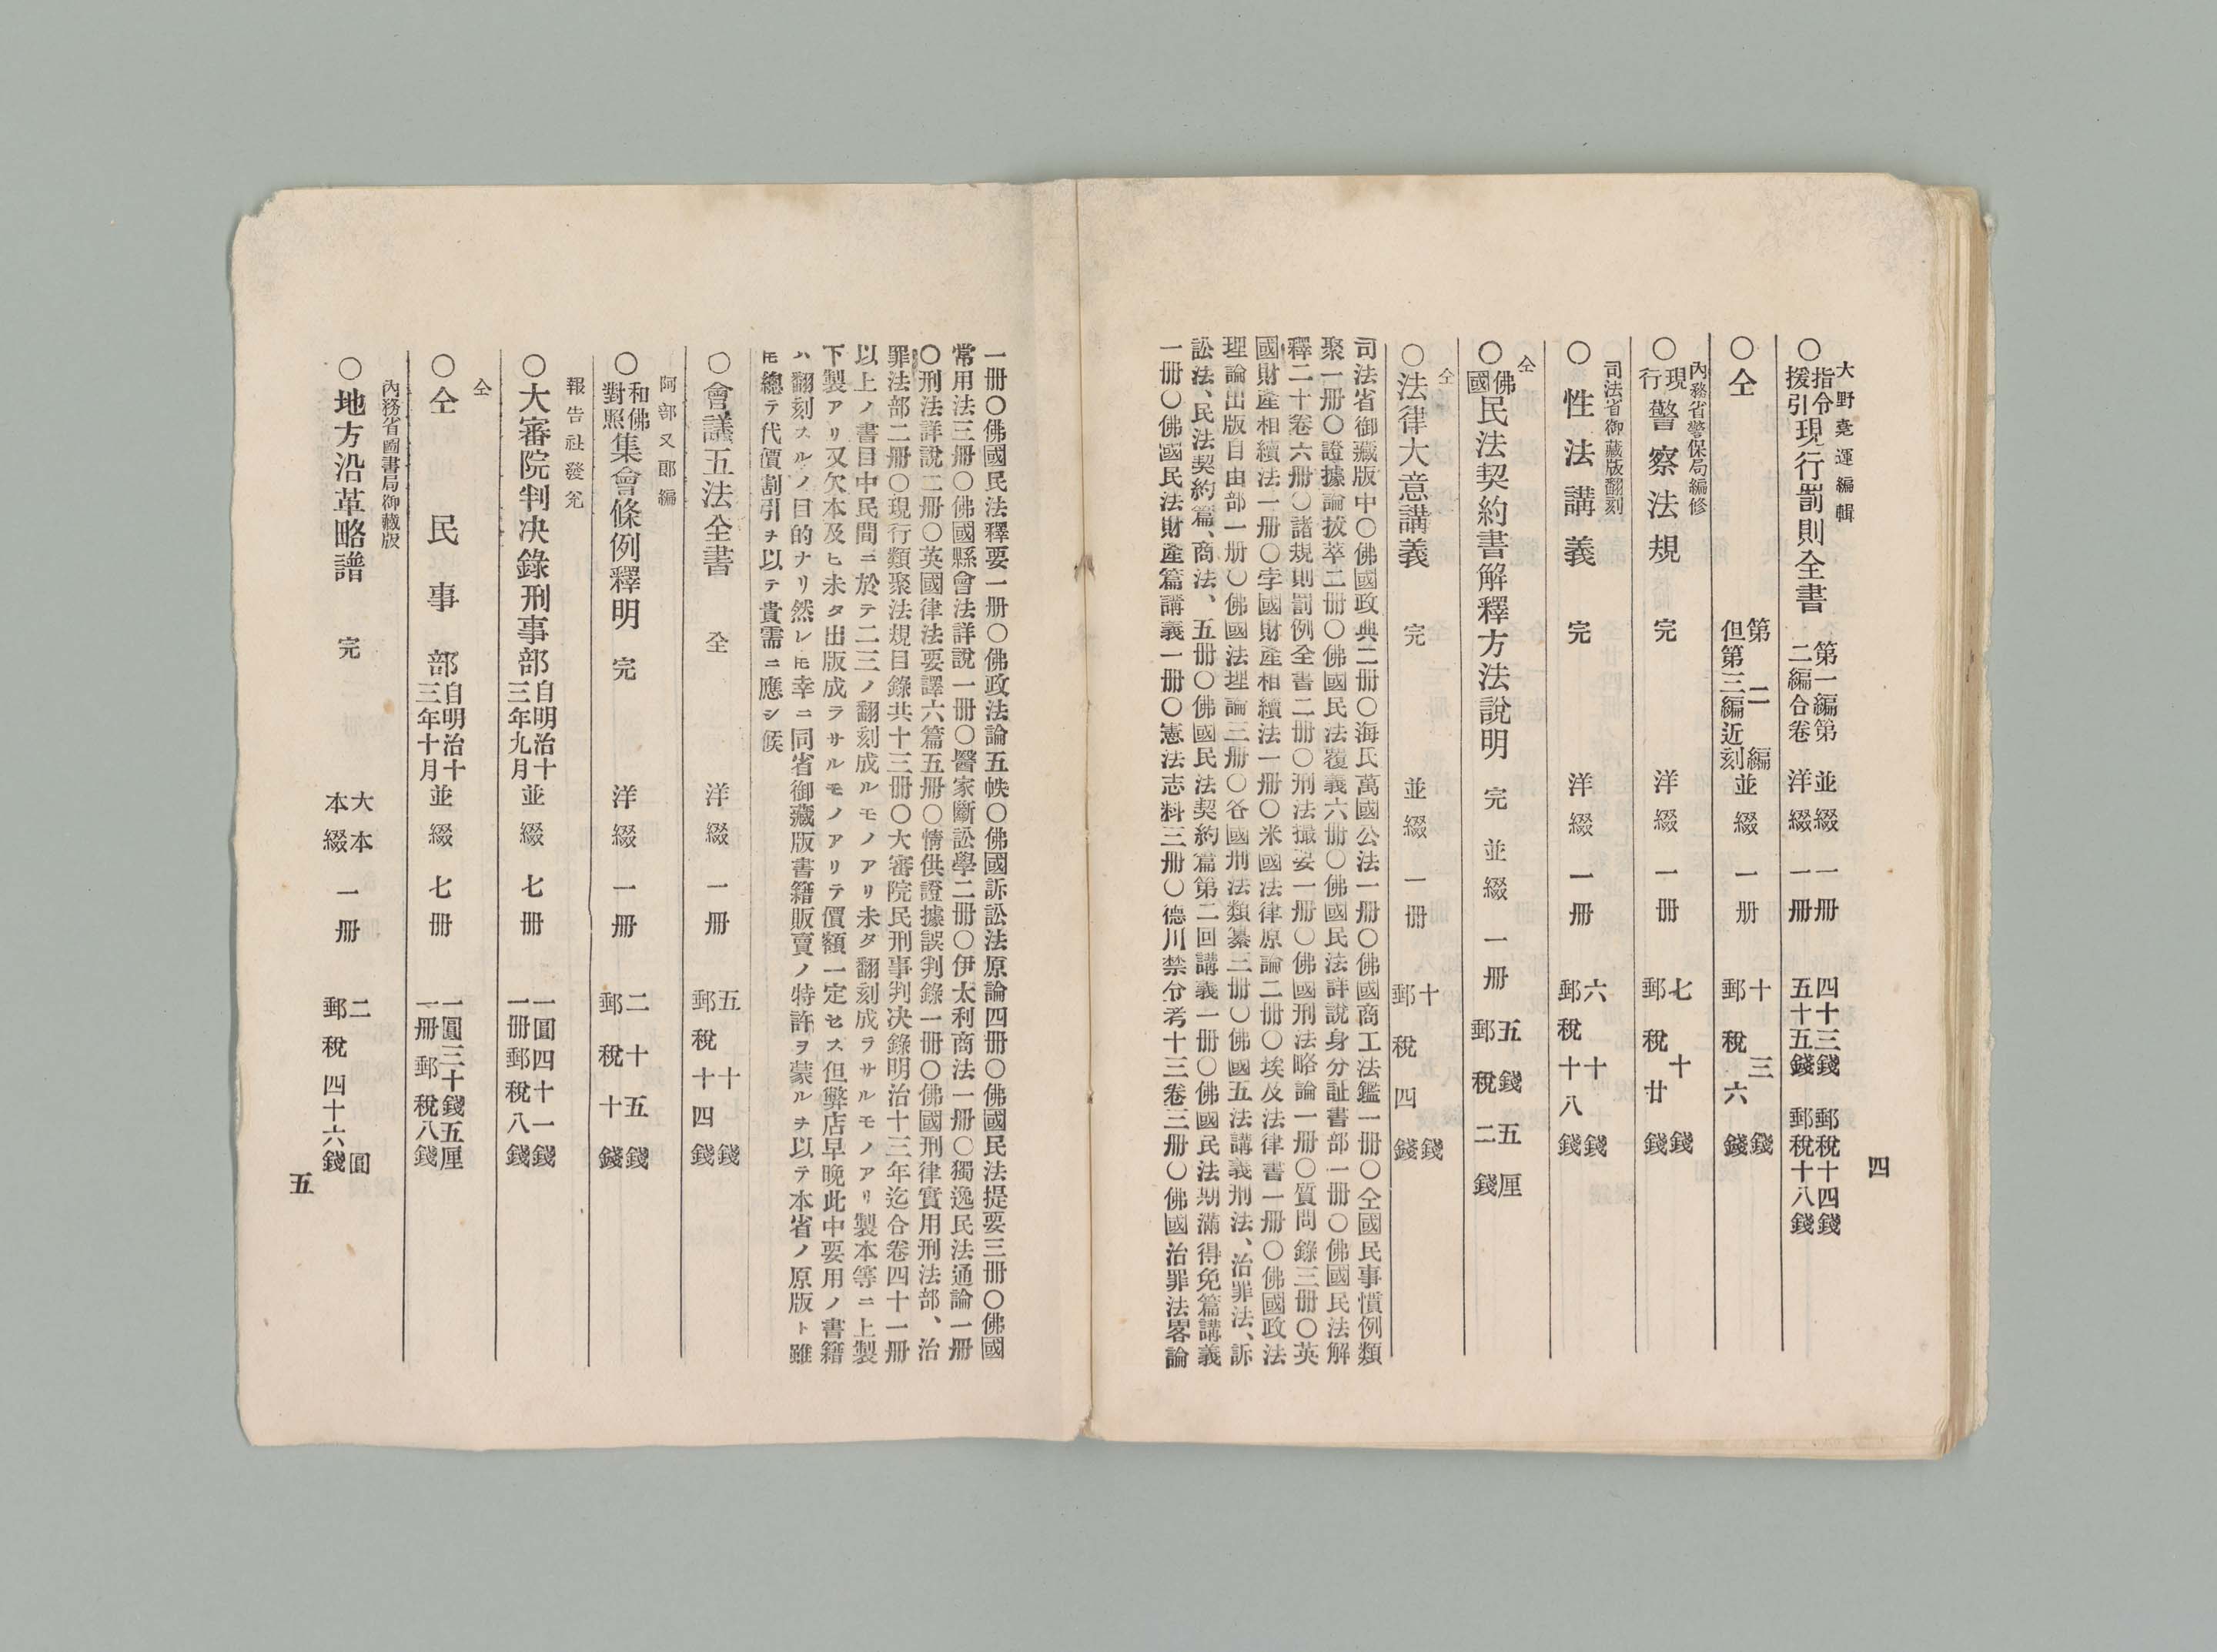 四
大野堯運編輯
○指令援引現行罰則全書 第一編第二編合卷 並綴一册 洋綴一册 四十三錢 五十五錢 郵稅十四錢 郵稅十八錢
○仝 第二編 但第三編近刻 並綴 一册 十三錢 郵稅六錢
內務省警保局編修
○現行警察法規 完 洋綴 一册 七十錢 郵稅廿錢
司法省御藏版翻刻
○性法講義 完 洋綴 一册 六十錢 郵稅十八錢
仝
○佛國民法契約書解釋方法說明 完 並綴 一册 五錢五厘 郵稅二錢
仝
○法律大意講義 完 並綴 一册 十錢 郵稅四錢
司法省御藏版中○佛國政典二册○海氏萬國公法一册○佛國商工法鑑一册○仝國民事慣例類
聚一册○證據論拔萃二册○佛國民法覆義六册○佛國民法詳說身分証書部一册○佛國民法解
釋二十卷六册○諸規則罰例全書二册○刑法撮要一册○佛國刑法略論一册○質問錄三册○英
國財產相續法一册○孛國財產相續法一册○米國法律原論二册○埃及法律書一册○佛國政法
理論出版自由部一册○佛國法理論三册○各國刑法類纂三册○佛國五法講義刑法、治罪法、訴
訟法、民法契約篇、商法、五册○佛國民法契約篇第二回講義一册○佛國民法期滿得免篇講義
一册○佛國民法財產篇講義一册○憲法志料三册○德川禁令考十三卷三册○佛國治罪法畧論
一册○佛國民法釋要一册○佛政法論五帙○佛國訴訟法原論四册○佛國民法提要三册○佛國
常用法三册○佛國縣會法詳說一册○醫家斷訟學二册○伊太利商法一册○獨逸民法通論一册
○刑法詳說二册○英國律法要譯六篇五册○情供證據誤判錄一册○佛國刑律實用刑法部、治
罪法部二册○現行類聚法規目錄共十三册○大審院民刑事判決錄明治十三年迄合卷四十一册
以上ノ書目中民間ニ於テ二三ノ翻刻成ルモノアリ未タ翻刻成ラサルモノアリ製本等ニ上製
下製アリ又欠本及ヒ未タ出版成ラサルモノアリテ價額一定セス但弊店早晚此中要用ノ書籍
ハ翻刻スルノ目的ナリ然レ𪜈幸ニ同省御藏版書籍販賣ノ特許ヲ蒙ルヲ以テ本省ノ原版ト雖
𪜈總テ代價割引ヲ以テ貴需ニ應シ候
○會議五法全書 全 洋綴 一册 五十錢 郵稅十四錢
阿部又郎編
○和佛對照集會條例釋明 完 洋綴 一册 二十五錢 郵稅十錢
報告社發兌
○大審院判決錄刑事部 自明治十三年九月 並綴 七册 一圓四十一錢 一册郵稅八錢
仝
○仝 民事部 自明治十三年十月 並綴 七册 一圓三十錢五厘 一册郵稅八錢
內務省圖書局御藏版
○地方沿革略譜 完 大本本綴 一册 二圓 郵稅四十六錢
五